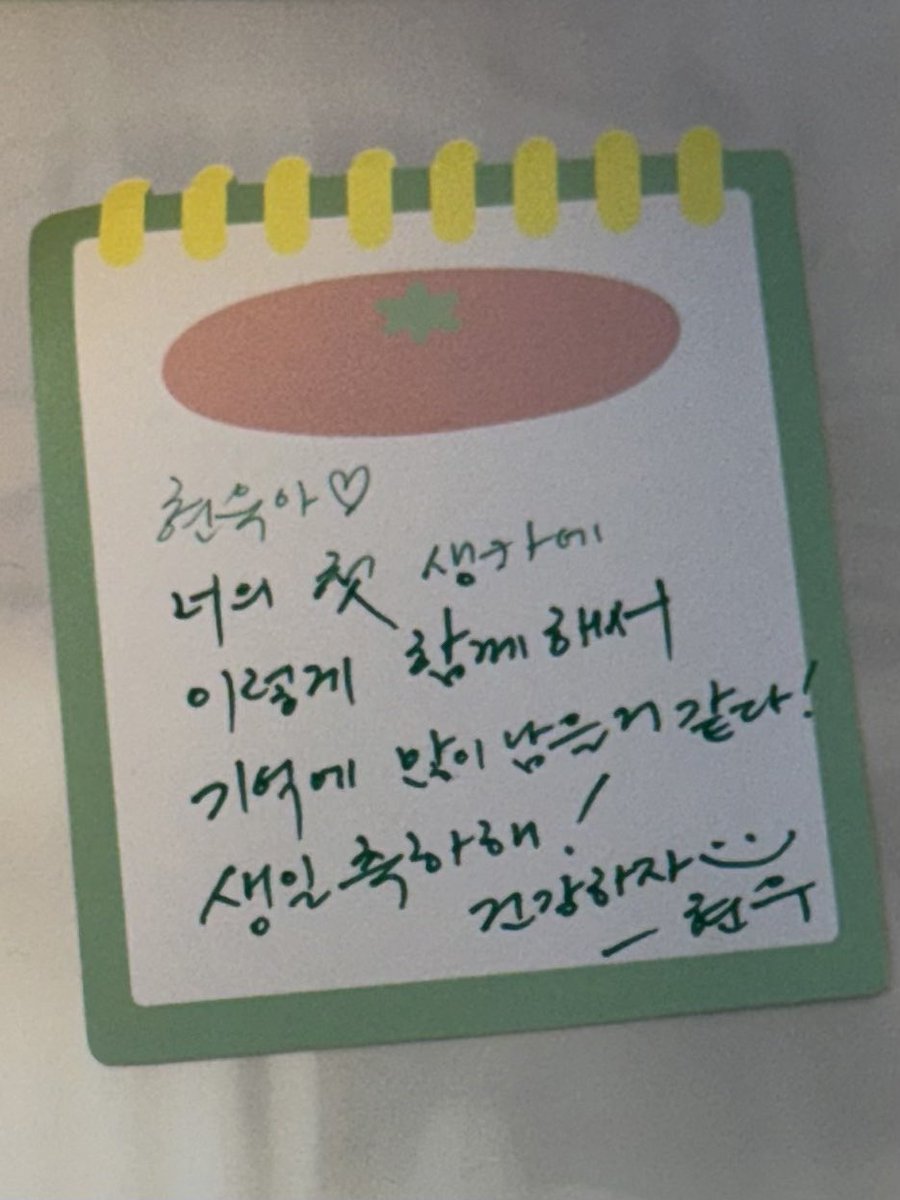 현욱아♡
너의 첫 생차에
이렇게 함께해서
기억에 많이 남을거 같다!
생일 축하해!
건강하자
– 현우